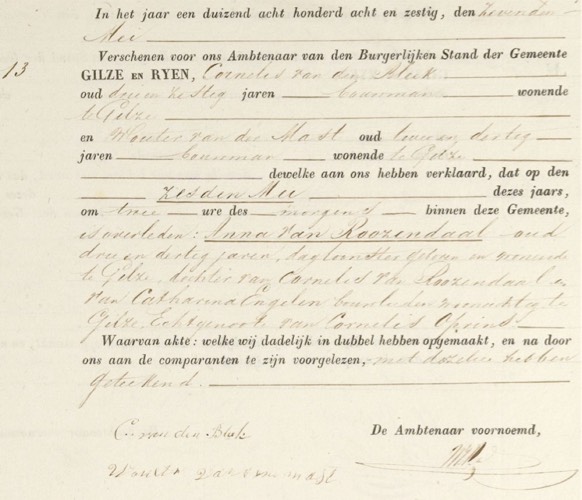 In het jaar een duizend acht honderd acht en zestig, den zevenden
Mei
13
Verschenen voor ons Ambtenaar van den Burgerlijken Stand der Gemeente
GILZE EN RYEN, Cornelis van den Bleek
oud drie en zestig jaren bouwman wonende
te Gilze
en Wouter van der Mast oud twee en dertig
jaren bouwman wonende te Gilze
dewelke aan ons hebben verklaard, dat op den
zesden Mei dezes jaars,
om twee ure des morgens binnen deze Gemeente,
is overleden: Anna van Roozendaal oud
drie en dertig jaren, dagloonster geboren en wonende
te Gilze, dochter van Cornelis van Roozendaal en
van Catharena Engelen bouwlieden woonachtig te
Gilze, Echtgenoote van Cornelis Oprins
Waarvan akte: welke wij dadelijk in dubbel hebben opgemaakt, en na door
ons aan de comparanten te zijn voorgelezen, met dezelve hebben
geteekend.
De Ambtenaar voornoemd,
C. van den Bleek